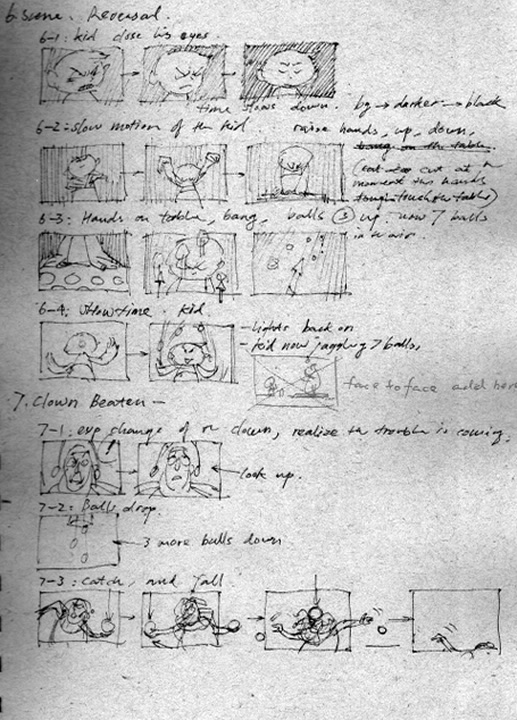 6. Scene. Reversal.
6-1: kid close his eyes.
time slows down. bg → darker → black
6-2: slow motion of the kid. raise hands, up, down,
bang on the table.
(cut at
moment the hands
touch the table)
6-3: Hands on table, bang, balls ③ up. now 7 balls
in air
6-4: Showtime. kid
- lights back on
- kid now juggling 7 balls,
face to face add here
7. Clown Beaten —
7-1: exp change of clown, realize the trouble is coming.
look up.
7-2: Balls drop.
3 more balls down
7-3: catch, and fall.